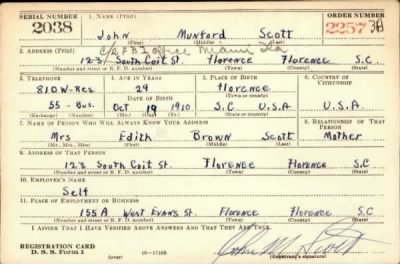 SERIAL NUMBER 1. NAME (Print) ORDER NUMBER
2038 John Munford Scott 2257
(First) (Middle) (Last)
2. ADDRESS (Print) c/o F B I Office Miami Fla
123 South Coit St. Florence Florence S.C.
(Number and street or R. F. D. number) (Town) (County) (State)
3. TELEPHONE 4. AGE IN YEARS 5. PLACE OF BIRTH 6. COUNTRY OF CITIZENSHIP
810W-Res. 29 Florence
DATE OF BIRTH (Town or county)
55 - Bus. Oct 19 1910 S.C. U.S.A U.S.A.
(Exchange) (Number) (Mo.) (Day) (Yr.) (State or country)
7. NAME OF PERSON WHO WILL ALWAYS KNOW YOUR ADDRESS 8. RELATIONSHIP OF THAT PERSON
Mrs Edith Brown Scott Mother
(Mr., Mrs., Miss) (First) (Middle) (Last)
9. ADDRESS OF THAT PERSON
123 South Coit St. Florence Florence S.C
(Number and street or R. F. D. number) (Town) (County) (State)
10. EMPLOYER'S NAME
Self
11. PLACE OF EMPLOYMENT OR BUSINESS
155A West Evans St. Florence Florence S.C
(Number and street or R. F. D. number) (Town) (County) (State)
I AFFIRM THAT I HAVE VERIFIED ABOVE ANSWERS AND THAT THEY ARE TRUE.
REGISTRATION CARD
D. S. S. Form 1 (over) John M. Scott
(Registrant's signature)